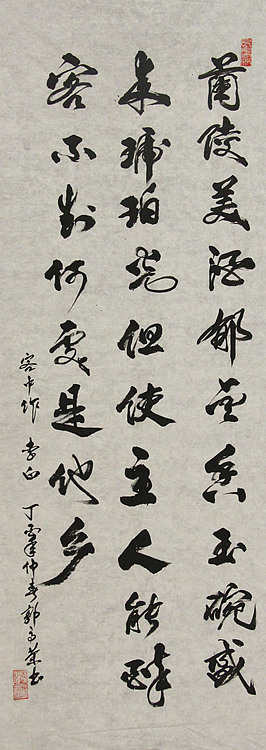 蘭陵美酒郁金香玉碗盛
来琥珀光但使主人能醉
客不知何處是他乡
客中作 李白 丁亥仲春郭书